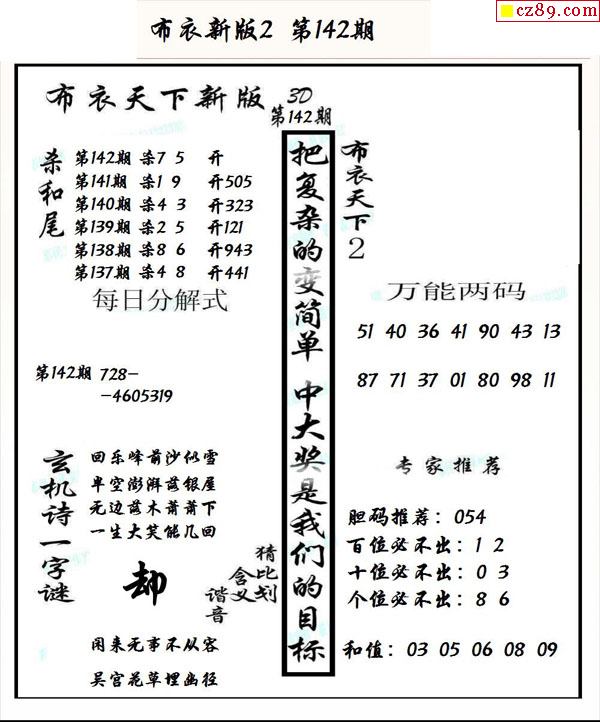 cz89.com
布衣新版2 第142期
布衣天下新版 3D
第142期
杀和尾
第142期 杀7 5 开
第141期 杀1 9 开505
第140期 杀4 3 开323
第139期 杀2 5 开121
第138期 杀8 6 开943
第137期 杀4 8 开441
每日分解式
第142期 728-
-4605319
玄机诗一字谜
回乐峰前沙似雪
半空澎湃兹银屋
无边兹木萧萧下
一生大笑能几回
却
猜比划
含义
谐音
闲来无事不从容
吴宫花草埋幽径
把复杂的变简单 中大奖是我们的目标
布衣天下2
万能两码
51 40 36 41 90 43 13
87 71 37 01 80 98 11
专家推荐
胆码推荐：054
百位必不出：1 2
十位必不出：0 3
个位必不出：8 6
和值：03 05 06 08 09